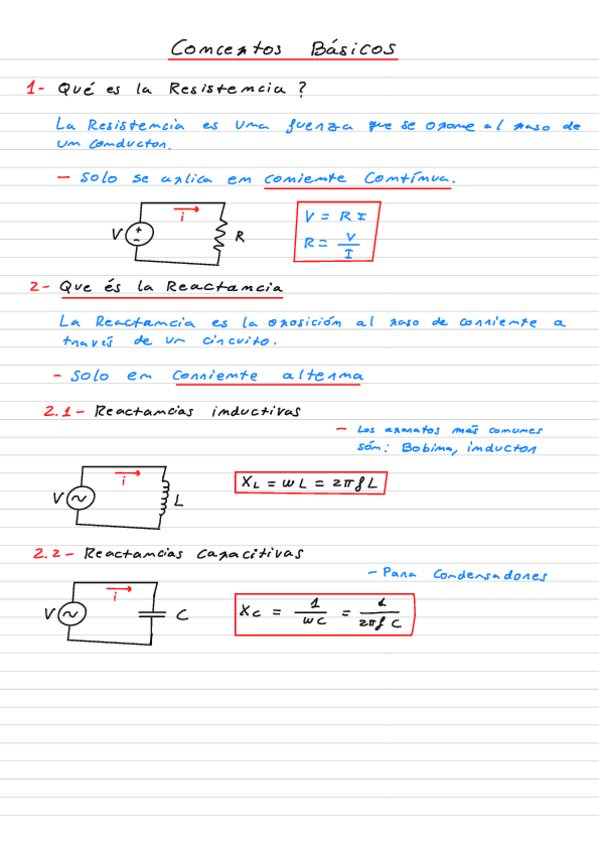 Conceptos Básicos
1- Qué es la Resistencia?
La Resistencia es una fuerza que se opone al paso de
un conductor.
- Solo se aplica en corriente Contínua.
V
+
-
i
R
V = R I
R = V / I
2- Que és la Reactancia
La Reactancia es la oposición al paso de corriente a
través de un circuito.
- Solo en corriente alterna
2.1- Reactancias inductivas
- Los aparatos más comunes
són: Bobina, inductor
V
i
L
XL = wL = 2πfL
2.2- Reactancias Capacitivas
- Para Condensadores
V
i
C
XC = 1 / wC = 1 / 2πf C